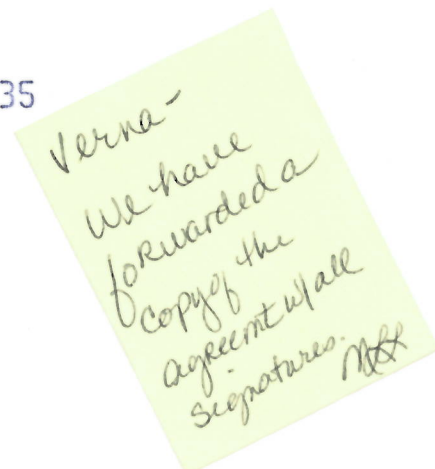 35
Verna-
We have
forwarded a
copy of the
agreemt w/all
signatures.